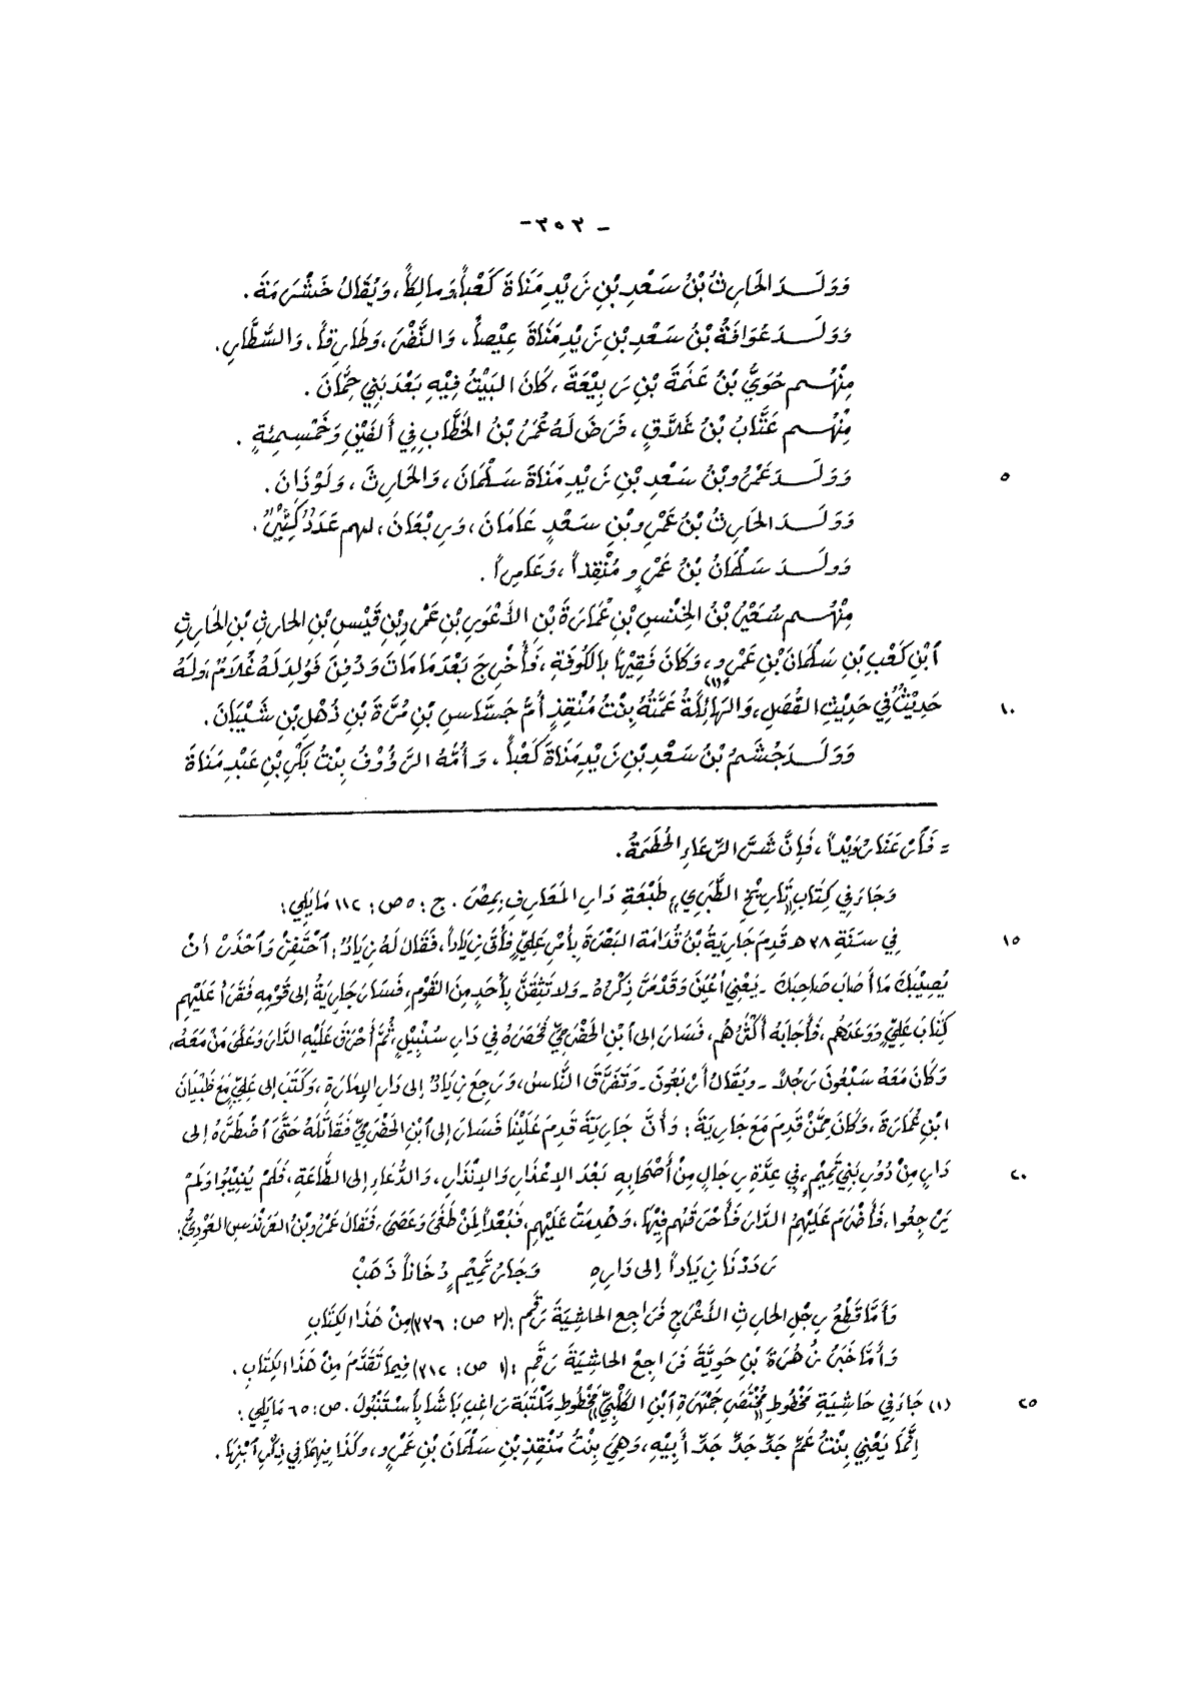 - ٣٥٣ -
وَوَلَـــدَ الحَارِثُ بْنُ سَعْدِ بْنِ زَيْدِ مَنَاةَ كَعْباً وَمالِكاً، وَيُقَالُ خَشْرَمَةَ.
وَوَلَـــدَ عُوَافَةُ بْنُ سَعْدِ بْنِ زَيْدِ مَنَاةَ عِيْصاً، وَالنَّضْرَ، وَطَارِقاً، وَالشَّطَّارِ.
مِنْهُـــم حُوَيُّ بْنُ عَنَمَةَ بْنِ رَبِيْعَةَ، كَانَ البَيْتُ فِيْهِ بَعْدَ بَنِي حِمَّانَ.
مِنْهُـــم عَتَّابُ بْنُ عَلَّاقٍ، فَرَضَ لَهُ عُمَرُ بْنُ الخَطَّابِ فِي أَلفَيْنِ وَخَمْسِمِئَةٍ.
وَوَلَـــدَ عَمْرُو بْنُ سَعْدِ بْنِ زَيْدِ مَنَاةَ سَلْمَانَ، وَالحَارِثَ، وَلَوْذَانَ. ٥
وَوَلَـــدَ الحَارِثُ بْنُ عَمْرِو بْنِ سَعْدٍ عَامَانَ، وَرِبْعَانَ، لهم عَدَدٌ كَثِيْرٌ.
وَولَـــدَ سَلْمَانُ بْنُ عَمْرٍو مُنْقِذاً، وَعَامِراً.
مِنْهُـــم سُعَيْرُ بْنُ الخِنْسِ بْنِ عُمَارَةَ بْنِ الأَعْوَرِ بْنِ عَمْرِو بْنِ قَيْسِ بْنِ الحارِثِ بْنِ الحَارِثِ
ٱبْنِ كَعْبِ بْنِ سَلْمَانَ بْنِ عَمْرٍو، وَكَانَ فَقِيْهًا بالكُوفَةِ، فَأُخْرِجَ بَعْدَ مَا مَاتَ وَدُفِنَ فَوُلِدَ لَهُ غُلَامٌ، وَلَهُ
حَدِيْثٌ فِي حَدِيْثِ القُصَلِ، وَالهَائِلَةُ عَمَّتُهُ (١) بِنْتُ مُنْقِذٍ أُمُّ جَسَّاسِ بْنِ مُرَّةَ بْنِ ذُهْلِ بْنِ شَيْبَانَ. ١٠
وَوَلَـــدَ جُشَمُ بْنُ سَعْدِ بْنِ زَيْدِ مَنَاةَ كَعْباً، وَأُمُّهُ الرَّؤُوْفُ بِنْتُ بَكْرِ بْنِ عَبْدِ مَنَاةَ
= فَأَرْعَنَا رُوَيْداً، فَإِنَّ شَرَّ الرِّعَاءِ الحُطَمَةُ.
وَجَاءَ فِي كِتَابِ «تَارِيْخِ الطَّبَرِي» طَبْعَةِ دَارِ المَعَارِفِ بِمِصْرَ. ج: ٥ ص: ١١٢ مَايَلِي:
فِي سَنَةِ ٣٨ هـ قَدِمَ جَارِيَةُ بْنُ قُدَامَةَ البَصْرَةَ بِأَمْرِ عَلِيٍّ فَأَتَى زِيَاداً، فَقَالَ لَهُ زِيَادٌ: ٱحْتَفِزْ وَٱحْذَرْ أنْ ١٥
يُصِيْبَكَ مَا أَصَابَ صَاحِبَكَ - يَعْنِي أَعْيَنَ وَقَدْ مَرَّ ذِكْرُهُ - وَلا تَثِقَنَّ بِأَحَدٍ مِنَ القَوْمِ، فَسَارَ جَارِيَةُ إلى قَوْمِهِ فَقَرَأَ عَلَيْهِم
كِتَابَ عَلِيٍّ وَوَعَدَهُم، فَأَجَابَهُ أَكْثَرُهُم، فَسَارَ إلى ٱبْنِ الحَضْرَمِيِّ فَحَصَرَهُ فِي دَارِ سُنْبِيْلٍ، ثُمَّ أَحْرَقَ عَلَيْهِ الدَّارَ وَعَلَى مَنْ مَعَهُ،
وَكَانَ مَعَهُ سَبْعُونَ رَجُلاً - وَيُقَالُ أَرْبَعُونَ - وَتَفَرَّقَ النَّاسُ، وَرَجِعَ زِيَادٌ إلى دَارِ الإِمَارَةِ، وَكَتَبَ إلى عَلِيٍّ مَعَ ظَبْيَانَ
ابْنِ عُمَارَةَ، وَكَانَ مِمَّنْ قَدِمَ مَعَ جَارِيَةَ: وَأَنَّ جَارِيَةَ قَدِمَ عَلَيْنَا فَسَارَ إلى ٱبْنِ الحَضْرَمِيِّ فَقَاتَلَهُ حَتَّى ٱضْطَرَّهُ إلى
دَارٍ مِنْ دُوْرِ بَنِي تَمِيْمٍ، فِي عِدَّةِ رِجَالٍ مِنْ أَصْحَابِهِ بَعْدَ الإعْذَارِ وَالإنْذَارِ، وَالدُّعَاءِ إلى الطَّاعَةِ، فَلَمْ يُنِيْبُوا وَلَمْ ٢٠
يَرْجِعُوا، فَأَضْرَمَ عَلَيْهِمُ الدَّارَ فَأَحْرَقَهُم فِيْهَا، وَهُدِمَتْ عَلَيْهِم، فَبُعْداً لِمَنْ طَغَى وَعَصَى، فَقَالَ عَمْرُو بْنُ العَرَنْدَسِ العَوْذِيُّ:
رَدَدْنَا زِيَاداً إلى دَارِهِ    وَجَارُ تَمِيْمٍ دُخَاناً ذَهَبْ
وَأَمَّا قَطْعُ رِجْلِ الحارِثِ الأَعْرَجِ فَرَاجِع الحاشِيَةَ رَقْم: (٢ ص: ٣٣٦) مِنْ هَذَا الكِتَابِ
وَأَمَّا خَبَرُ زُهْرَةَ بْنِ حَوِيَّةَ فَرَاجِعْ الحَاشِيَةَ رَقْم: (١ ص: ٣١٢) فِيمَا تَقَدَّمَ مِنْ هَذَا الكِتَابِ.
(١) جَاءَ فِي حَاشِيَةِ مَخْطُوطِ «مُخْتَصَرِ جَمْهَرَةِ ابْنِ الكَلْبِيِّ» مَخْطُوطِ مَكْتَبَةِ رَاغِبِ بَاشَا بِأسْتَنْبُولَ. ص: ٦٥ مَايَلِي: ٢٥
إِنَّمَا يَعْنِي بِنْتُ عَمِّ جَدِّ جَدِّ جَدِّ أَبِيْهِ، وَهِيَ بِنْتُ مُنْقِذِ بْنِ سَلْمَانَ بْنِ عَمْرٍو، وكَذَا فِيهِمَا فِي ذِكْرِ ٱبْنِهَا.